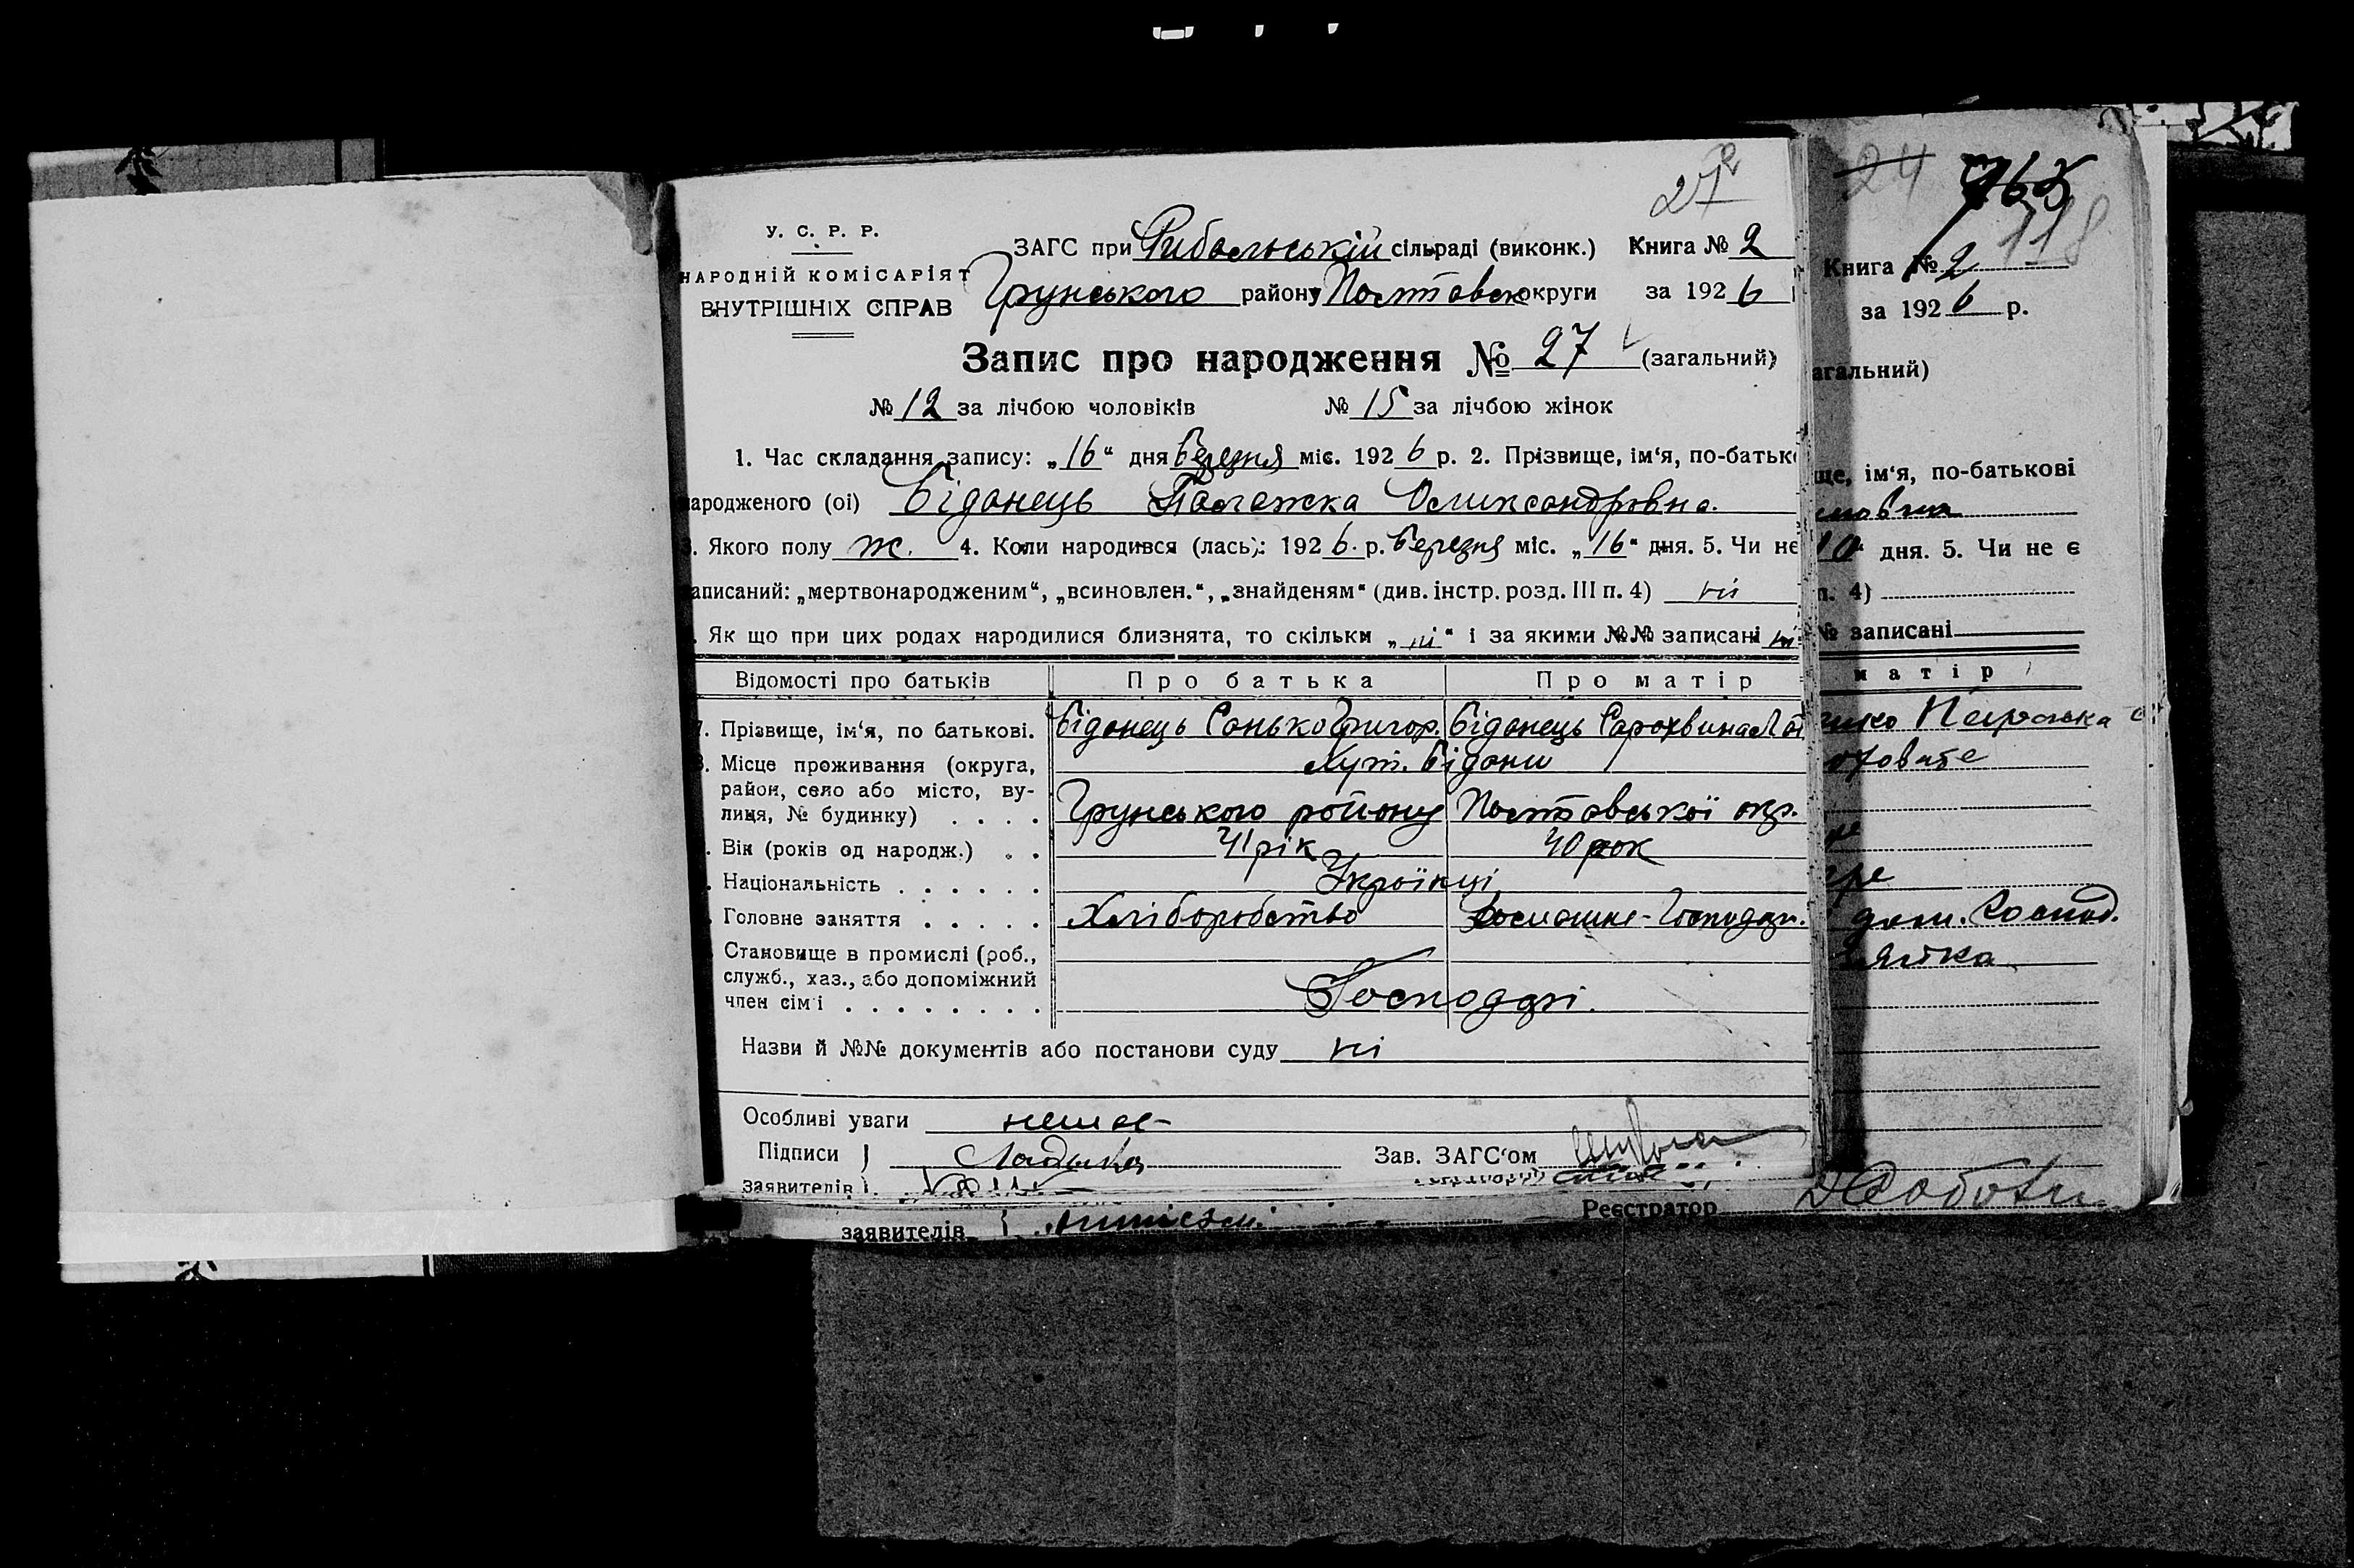 27
У. С. Р. Р.
НАРОДНІЙ КОМІСАРІЯТ
ВНУТРІШНІХ СПРАВ
ЗАГС при Рибальській сільраді (виконк.) Книга № 2
Грунського району Полтавськ округи за 1926
Запис про народження № 27 (загальний)
№ 12 за лічбою чоловіків № 15 за лічбою жінок
1. Час складання запису: „16“ дня Березня міс. 1926 р. 2. Прізвище, ім'я, по-батьк
ародженого (ої) Біданець Палажка Олександрівна.
. Якого полу ж. 4. Коли народився (лась): 1926. р. Березня міс. „16“ дня. 5. Чи не
аписаний: „мертвонародженим“, „всиновлен.“, „знайденям“ (див. інстр. розд. III п. 4) ні
. Як що при цих родах народилися близнята, то скільки „ні“ і за якими №№ записані ні
Відомості про батьків Про батька Про матір
7. Прізвище, ім'я, по батькові. Біданець Санько Григор. Біданець
8. Місце проживання (округа, район, село або місто, вулиця, № будинку) . . . . Хут. Бідани
Грунського району Полтавської окр.
. Вік (років од народж.) . . 41 рік 40 рок
. Національність . . . . . . Українці
. Головне заняття . . . . . Хліборобство Домашнє-Господар.
Становище в промислі (роб., служб., хаз., або допоміжний член сім'ї . . . . . . . . Господарі.
Назви й №№ документів або постанови суду ні
Особливі уваги немає
Підписи Зав. ЗАГС'ом
заявителів
заявителів Реєстратор
24
118
Книга № 2
за 1926 р.
агальний)
ще, ім'я, по-батькові
10“ дня. 5. Чи не є
п. 4)
№ записані
матір
дом. Господ.